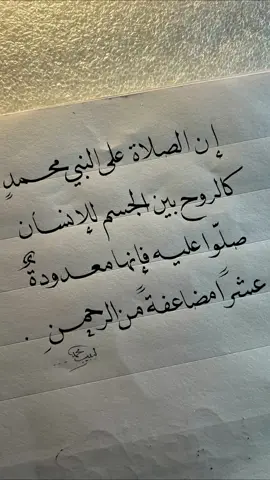 إن الصلاة على النبي محمدٍ
كالروح بين الجسم للإنسان
صلّوا عليه فإنها معدودةٌ
عشراً مضاعفةً من الرحمنِ .